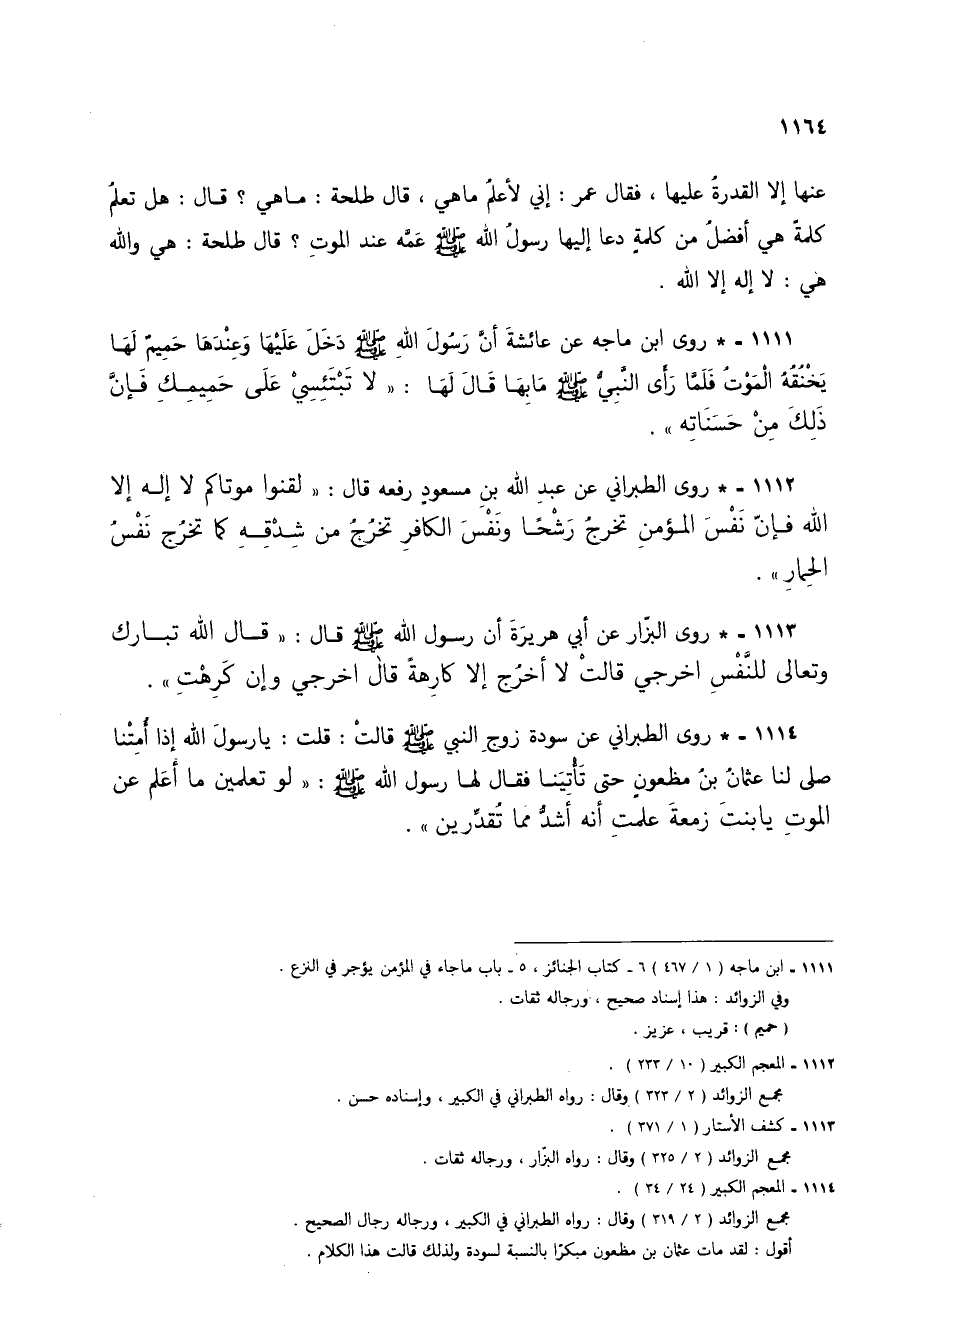 ١١٦٤
عنها إلا القدرةُ عليها ، فقال عمر : إني لأعلمُ ماهي ، قال طلحة : ماهي ؟ قال : هل تعلمُ
كلمةً هي أفضلُ من كلمةٍ دعا إليها رسولُ الله ﷺ عَمَّه عند الموتِ ؟ قال طلحة : هي والله
هي : لا إله إلا الله .
١١١١ - * روى ابن ماجه عن عائشةَ أنَّ رَسُولَ اللهِ ﷺ دَخَلَ عَلَيْهَا وَعِنْدَهَا حَمِيمٌ لَهَا
يَخْنُقُهُ الْمَوْتُ فَلَمَّا رَأَى النَّبِيُّ ﷺ مَابِهَا قَالَ لَهَا : « لا تَبْتَئِسِيْ عَلَى حَمِيمِكِ فَإِنَّ
ذَلِكَ مِنْ حَسَنَاتِه » .
١١١٢ - * روى الطبراني عن عبدِ الله بنِ مسعودٍ رفعه قال : « لقنوا موتاكم لا إله إلا
الله فإنّ نَفْسَ المؤمنِ تخرجُ رَشْحًا ونَفْسَ الكافرِ تخرُجُ من شِدْقِهِ كما تخرُج نَفْسُ
الحِمارِ » .
١١١٣ - * روى البزّار عن أبي هريرَةَ أن رسول الله ﷺ قال : « قال الله تبارك
وتعالى للنَّفْسِ اخرجي قالتْ لا أخرُج إلا كارِهةً قال اخرجي وإن كَرِهْتِ » .
١١١٤ - * روى الطبراني عن سودة زوج النبي ﷺ قالتْ : قلت : يارسولَ الله إذا أُمِتْنا
صلى لنا عثمانُ بنُ مظعونٍ حتى تَأْتِيَنا فقال لها رسول الله ﷺ : « لو تعلمين ما أَعلم عن
الموتِ يابنتَ زمعةَ علمتِ أنه أشدُّ مما تُقدِّرين » .
١١١١ - ابن ماجه ( ١ / ٤٦٧ ) ٦ - كتاب الجنائز ، ٥ - باب ماجاء في المؤمن يؤجر في النزع .
وفي الزوائد : هذا إسناد صحيح ، ورجاله ثقات .
( حميم ) : قريب ، عزيز .
١١١٢ - المعجم الكبير ( ١٠ / ٢٣٣ ) .
مجمع الزوائد ( ٢ / ٣٢٣ ) وقال : رواه الطبراني في الكبير ، وإسناده حسن .
١١١٣ - كشف الأستار ( ١ / ٣٧١ ) .
مجمع الزوائد ( ٢ / ٣٢٥ ) وقال : رواه البزّار ، ورجاله ثقات .
١١١٤ - المعجم الكبير ( ٢٤ / ٣٤ ) .
مجمع الزوائد ( ٢ / ٣١٩ ) وقال : رواه الطبراني في الكبير ، ورجاله رجال الصحيح .
أقول : لقد مات عثمان بن مظعون مبكرًا بالنسبة لسودة ولذلك قالت هذا الكلام .